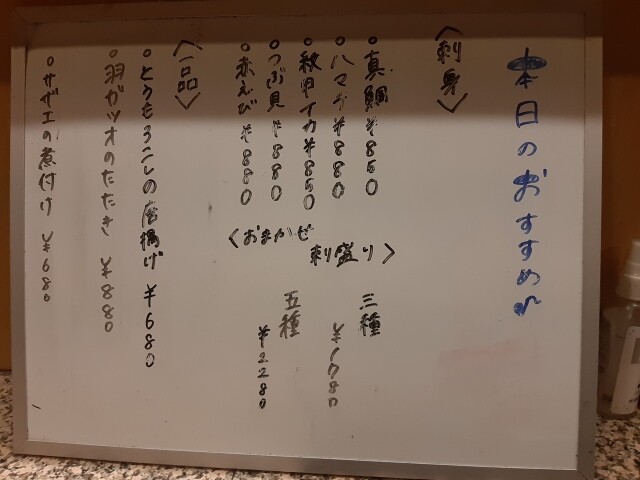 本日のおすすめ
〈刺身〉
○真鯛 ¥850
○ハマチ ¥880
○紋甲イカ ¥850
○つぶ貝 ¥880
○赤えび ¥880
〈おまかせ
刺盛り〉
三種
¥1780
五種
¥2280
〈一品〉
○とうもろこしの唐揚げ ¥680
○羽ガツオのたたき ¥880
○サザエの煮付け ¥680